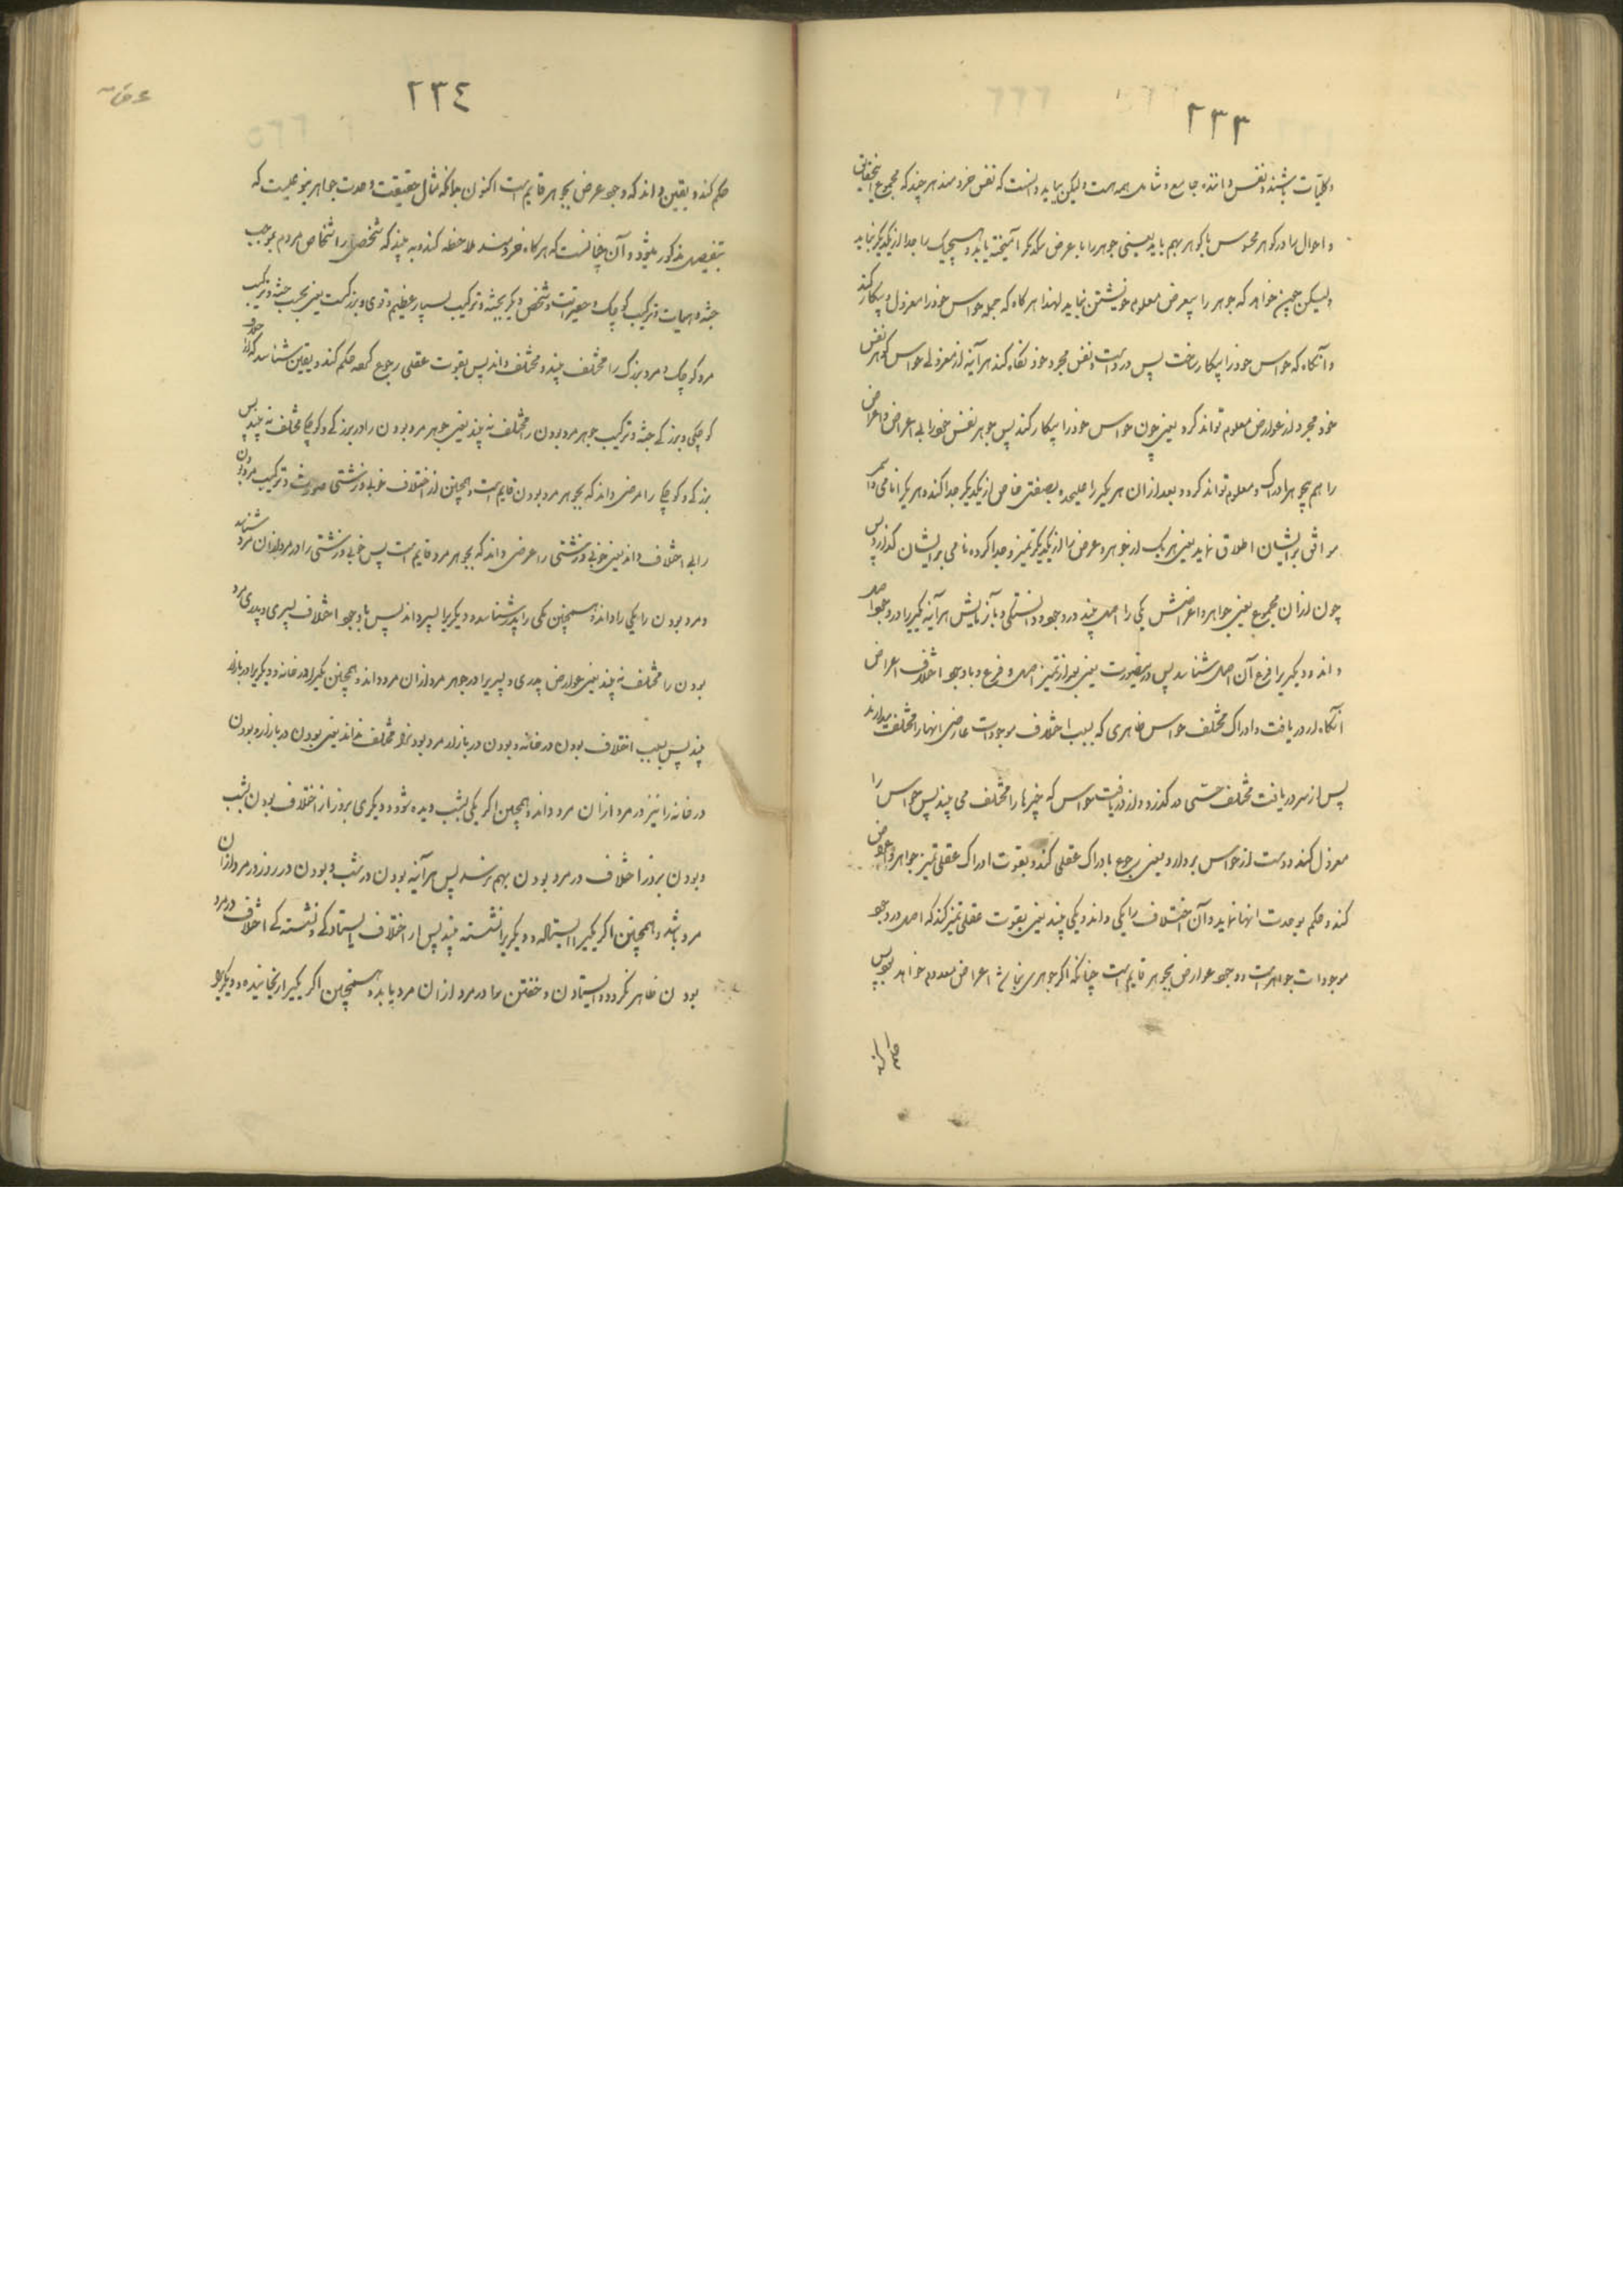 ٢٣٣
و کلیات باشند و نفس داننده جامع و شامل همه است ولیکن بباید دانست که نفس خردمند هر چند که مجموع این حقایق
و احوال را در گوهر محسوس با گوهر بهم یابد یعنی جوهر را با عرض یکدیگر آمیخته یابد و هیچیک را جدا از یکدیگر نیابد
ولیکن چون خواهد که جوهر را بیعرض معلوم خویشتن نماید لهذا هرگاه که جمله حواس خود را معزول و بیکار کند
و آنگاه که حواس خود را بیکار ساخت پس در ذات و نفس مجرد خود نگاه کند هر آینه از معزولی حواس گوهر نفس
خود مجرد از عوارض معلوم تواند کرد یعنی چون حواس خود را بیکار کند پس جوهر نفس خود را بی اعراض و اعراض
را هم بجوهر ادراک و معلوم تواند کرد و بعد از آن هر یکی را علیحده بصفتی خاص از یکدیگر جدا کند و هر یک را نامی
موافق بر ایشان اطلاق نماید یعنی هر یک از جوهر و عرض را از یکدیگر تمیز و جدا کرده نامی بر ایشان گذارد پس
چون از آن مجموع یعنی جواهر و اعراضش یکی را اصل بیند در وجود و دانستگی و باز یابش هر آینه یکی را در وجود اصل
داند و دیگریرا فرع آن اصل شناسد پس در اینصورت یعنی بعد از تمیز اصل و فرع و با وجود اختلاف اعراض
آنگاه از دریافت و ادراک مختلف حواس ظاهری که بسبب اختلاف موجودات عارضی انها را مختلف میدارند
پس از سر دریافت مختلف حسّی در گذرد و از دریافت حواس که چیزها را مختلف می بیند پس حواس را
معزول کند و دست از حواس بردارد یعنی رجوع بادراک عقلی کند و بقوت ادراک عقلی تمیز جواهر و اعراض
کند و حکم بوحدت انها نماید و آن اختلاف را یکی داند و یکی بیند یعنی بقوت عقلی تمیز کند که اصل در وجود
موجودات جواهر است و وجود عوارض بجوهر قایم است چنانکه اگر جوهری نباشد اعراض معدوم خواهد بود پس
حکم کند
٢٣٤
حکم کند و یقین داند که وجود عرض بجوهر قایم است اکنون بدانکه مثال حقیقت وحدت جواهر بنوعیست که
بتفصیل مذکور میشود و آن چنانست که هرگاه خردمند ملاحظه کند و به بیند که شخصی را از اشخاص مردم بموجب
جثه و هیات و ترکیب کوچک و حقیر است و شخص دیگر بجثه و ترکیب بسیار عظیم و قوی و بزرگست یعنی بحسب جثه و ترکیب
مرد کوچک و مرد بزرگ را مختلف بیند و مختلف داند پس بقوت عقلی رجوع کرده حکم کند و یقین شناسد که از
کوچکی و بزرگی جثه و ترکیب جوهر مرد بودن را مختلف نه بیند یعنی جوهر مرد بودن را در بزرگی و کوچکی مختلف نه بیند پس
بزرگی و کوچکی را عرضی داند که بجوهر مرد بودن قایم است و همچنین از اختلاف خوبی و زشتی صورت و ترکیب مرد بودن
را بی اختلاف داند یعنی خوبی و زشتی را عرضی داند که بجوهر مرد قایم است پس خوبی و زشتی را در مرد از آن مرد شناسد
و مرد بودن را یکی داند و همچنین یکی را پدر شناسد و دیگریرا پسر داند پس با وجود اختلاف پسری و پدری مرد
بودن را مختلف نه بیند یعنی عوارض پدری و پسری را در جوهر مرد از آن مرد داند و همچنین یکی را در خانه و دیگریرا در بازار
بیند پس بسبب اختلاف بودن در خانه و بودن در بازار مرد بودنرا مختلف نداند یعنی بودن در بازار و بودن
در خانه را نیز در مرد از آن مرد داند و همچنین اگر یکی بشب دیده شود و دیگری بروز از اختلاف بودن بشب
و بودن بروز اختلاف در مرد بودن بهم نرسد پس هر آینه بودن در شب و بودن در روز در مرد از آن
مرد باشد و همچنین اگر یکی را ایستاده و دیگریرا نشسته بیند پس از اختلاف ایستادگی و نشستگی اختلاف در مرد
بودن ظاهر نگردد و ایستادن و خفتن را در مرد از آن مرد یابد و همچنین اگر یکی را